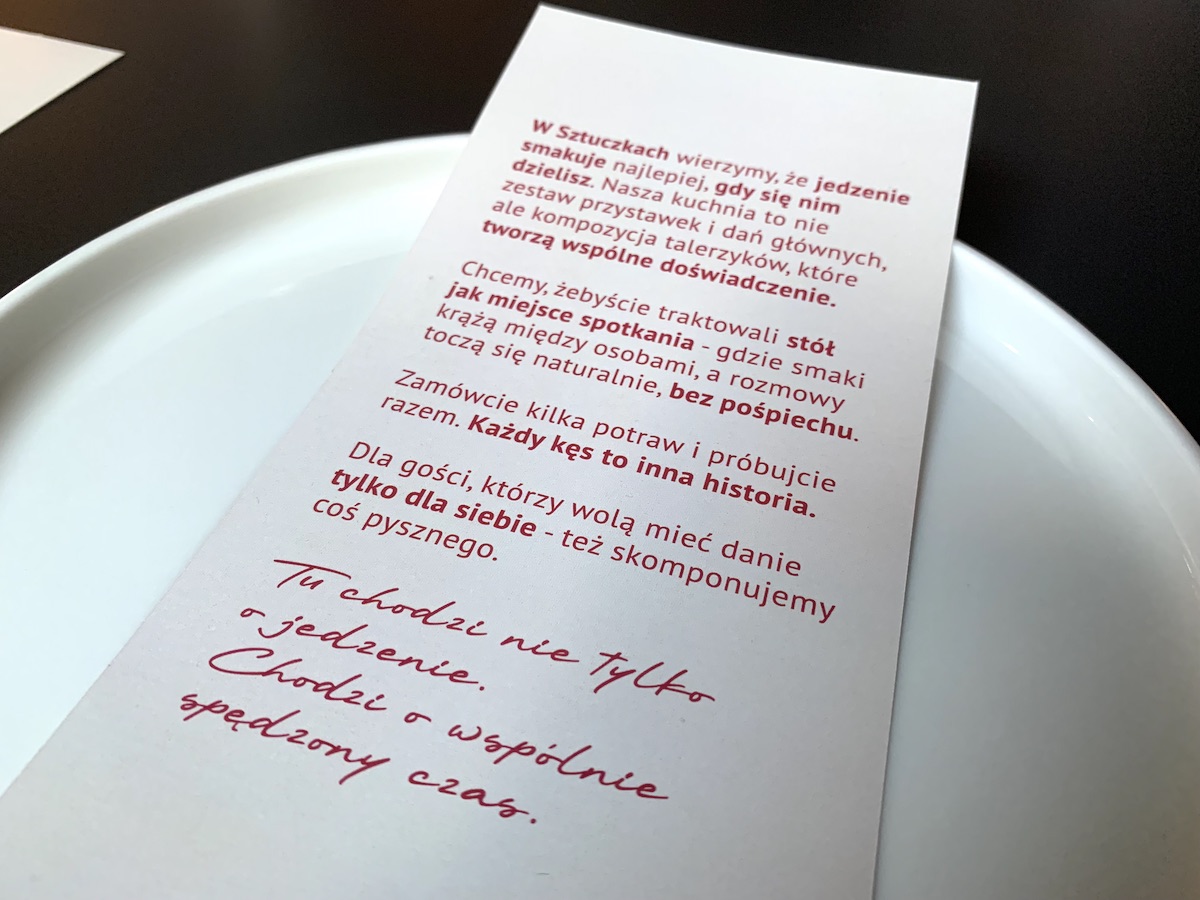 W Sztuczkach wierzymy, że jedzenie
smakuje najlepiej, gdy się nim
dzielisz. Nasza kuchnia to nie
zestaw przystawek i dań głównych,
ale kompozycja talerzyków, które
tworzą wspólne doświadczenie.
Chcemy, żebyście traktowali stół
jak miejsce spotkania - gdzie smaki
krążą między osobami, a rozmowy
toczą się naturalnie, bez pośpiechu.
Zamówcie kilka potraw i próbujcie
razem. Każdy kęs to inna historia.
Dla gości, którzy wolą mieć danie
tylko dla siebie - też skomponujemy
coś pysznego.
Tu chodzi nie tylko
o jedzenie.
Chodzi o wspólnie
spędzony czas.